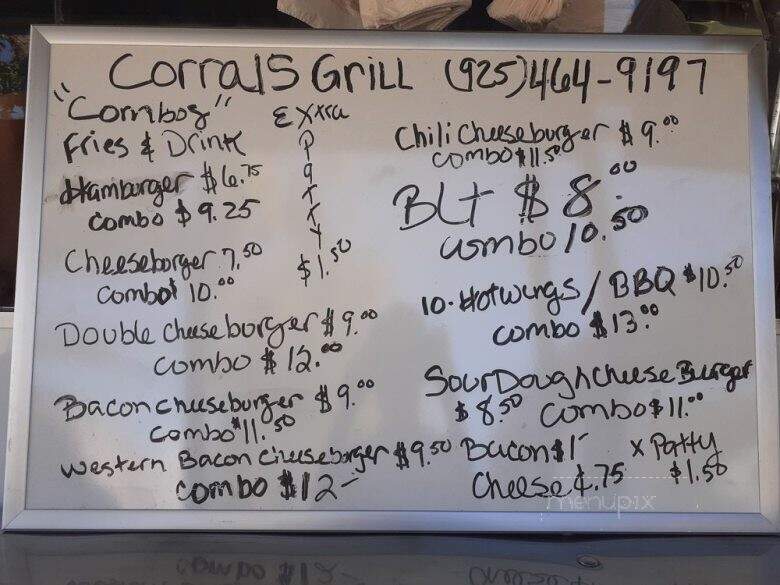 Corrals Grill (925)464-9197
"Combos"
Fries & Drink
Hamburger $6.75
combo $9.25
Cheeseborger 7.50
Combo 10.00
Double cheeseburger $9.00
combo $12.00
Bacon cheeseburger $9.00
Combo $11.50
western Bacon cheeseborger $9.50
combo $12-
Extra
Patty
$1.50
Chili Cheeseburger $9.00
combo $11.50
BLT $8.00
combo 10.50
10. Hotwings/BBQ $10.50
combo $13.00
SourDough cheese Burger
$8.50 Combo $11.00
Bacon $1- x Patty
Cheese .75 $1.50
menupix